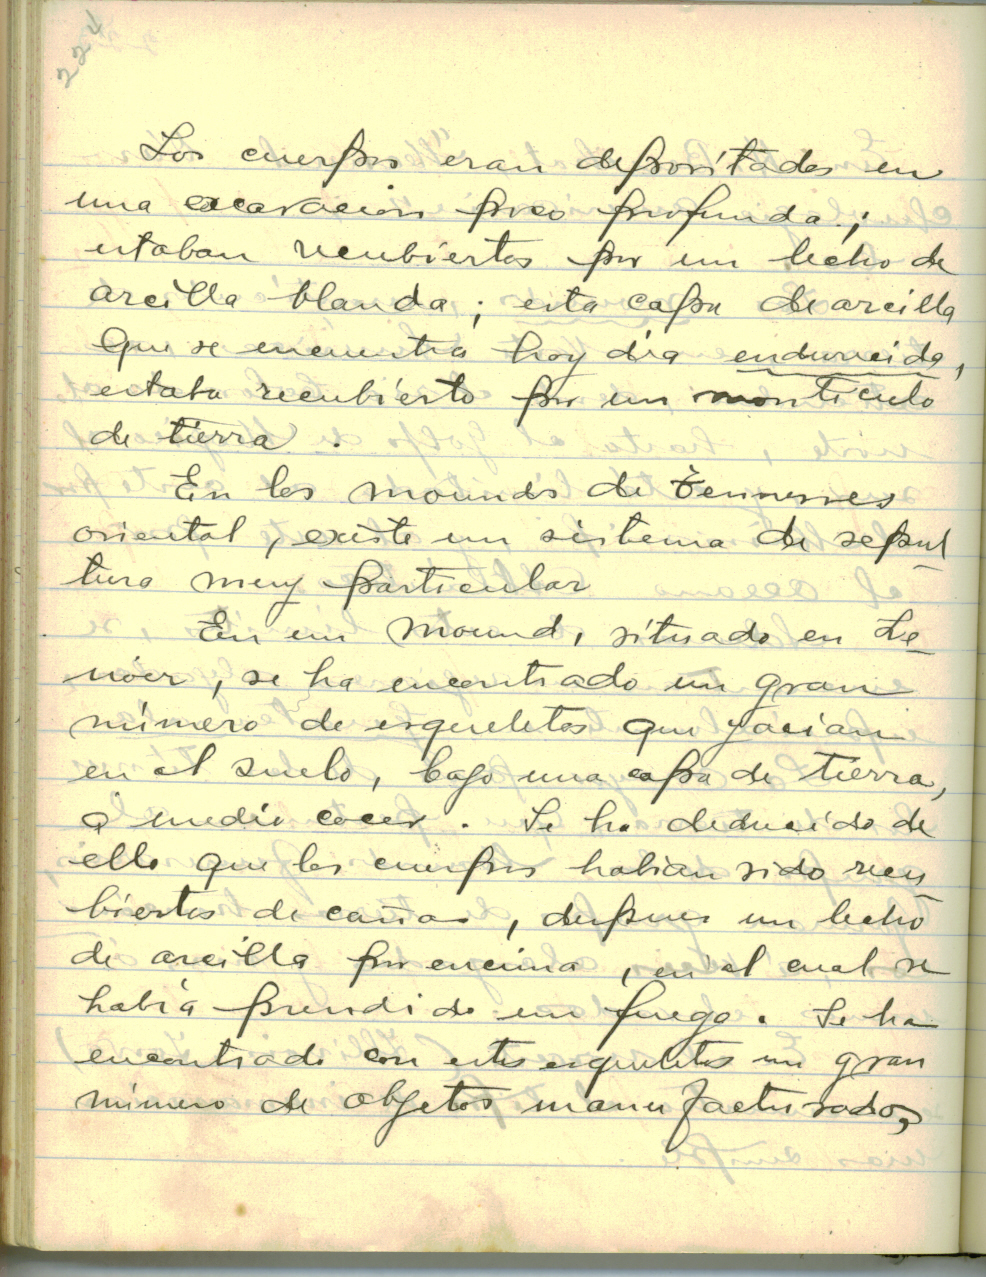 224
Los cuerpos eran depositados en
una excavacion poco profunda;
estaban recubiertos por un lecho de
arcilla blanda; esta capa de arcilla
que se encuentra hoy dia endurecida,
estaba recubierto por un montículo
de tierra.
En los mounds de Tennesses
oriental, existe un sistema de sepul
tura muy particular
En un mound, situado en Le
noir, se ha encontrado un gran
número de esqueletos que yacian
en el suelo, bajo una capa de tierra,
a medio cocer. Se ha deducido de
ello que los cuerpos habian sido recu
biertos de cañas, despues un lecho
de arcilla por encima, en el cual se
había prendido un fuego. Se ha
encontrado con estos esqueletos un gran
número de objetos manufacturados,